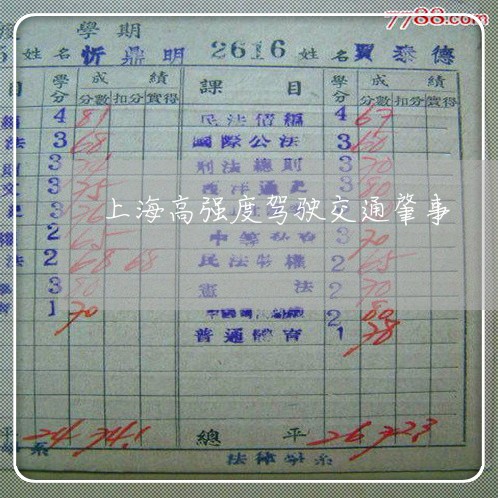 7788.com
學期
姓名 忻鼎明 2616 姓名 賈泰德
目 學分 成績 課目 學分 成績
分數 扣分 實得 分數 扣分 實得
4 81 民法債編 4 67
法 3 68 國際公法 3 60
3 刑法總則 3 70
3 75 西洋通史 3 80
3
上海高强度驾驶交通肇事
2 65 3 70
法 2 68 68 民法物權 2 65
3 80 憲法 2 70
1 70 2 80
普通體育 1 78
平 24 74.1 總平 26 72.3
系 法律學系